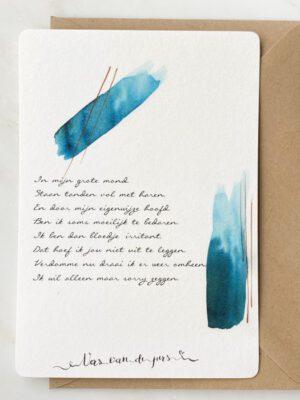 In mijn grote mond
Staan tanden vol met haren
En door mijn eigenwijze hoofd
Ben ik soms moeilijk te bedaren.
Ik ben dan bloedje irritant.
Dat hoef ik jou niet uit te leggen.
Verdomme nu draai ik er weer omheen
Ik wil alleen maar sorry zeggen.
Vers van de pers